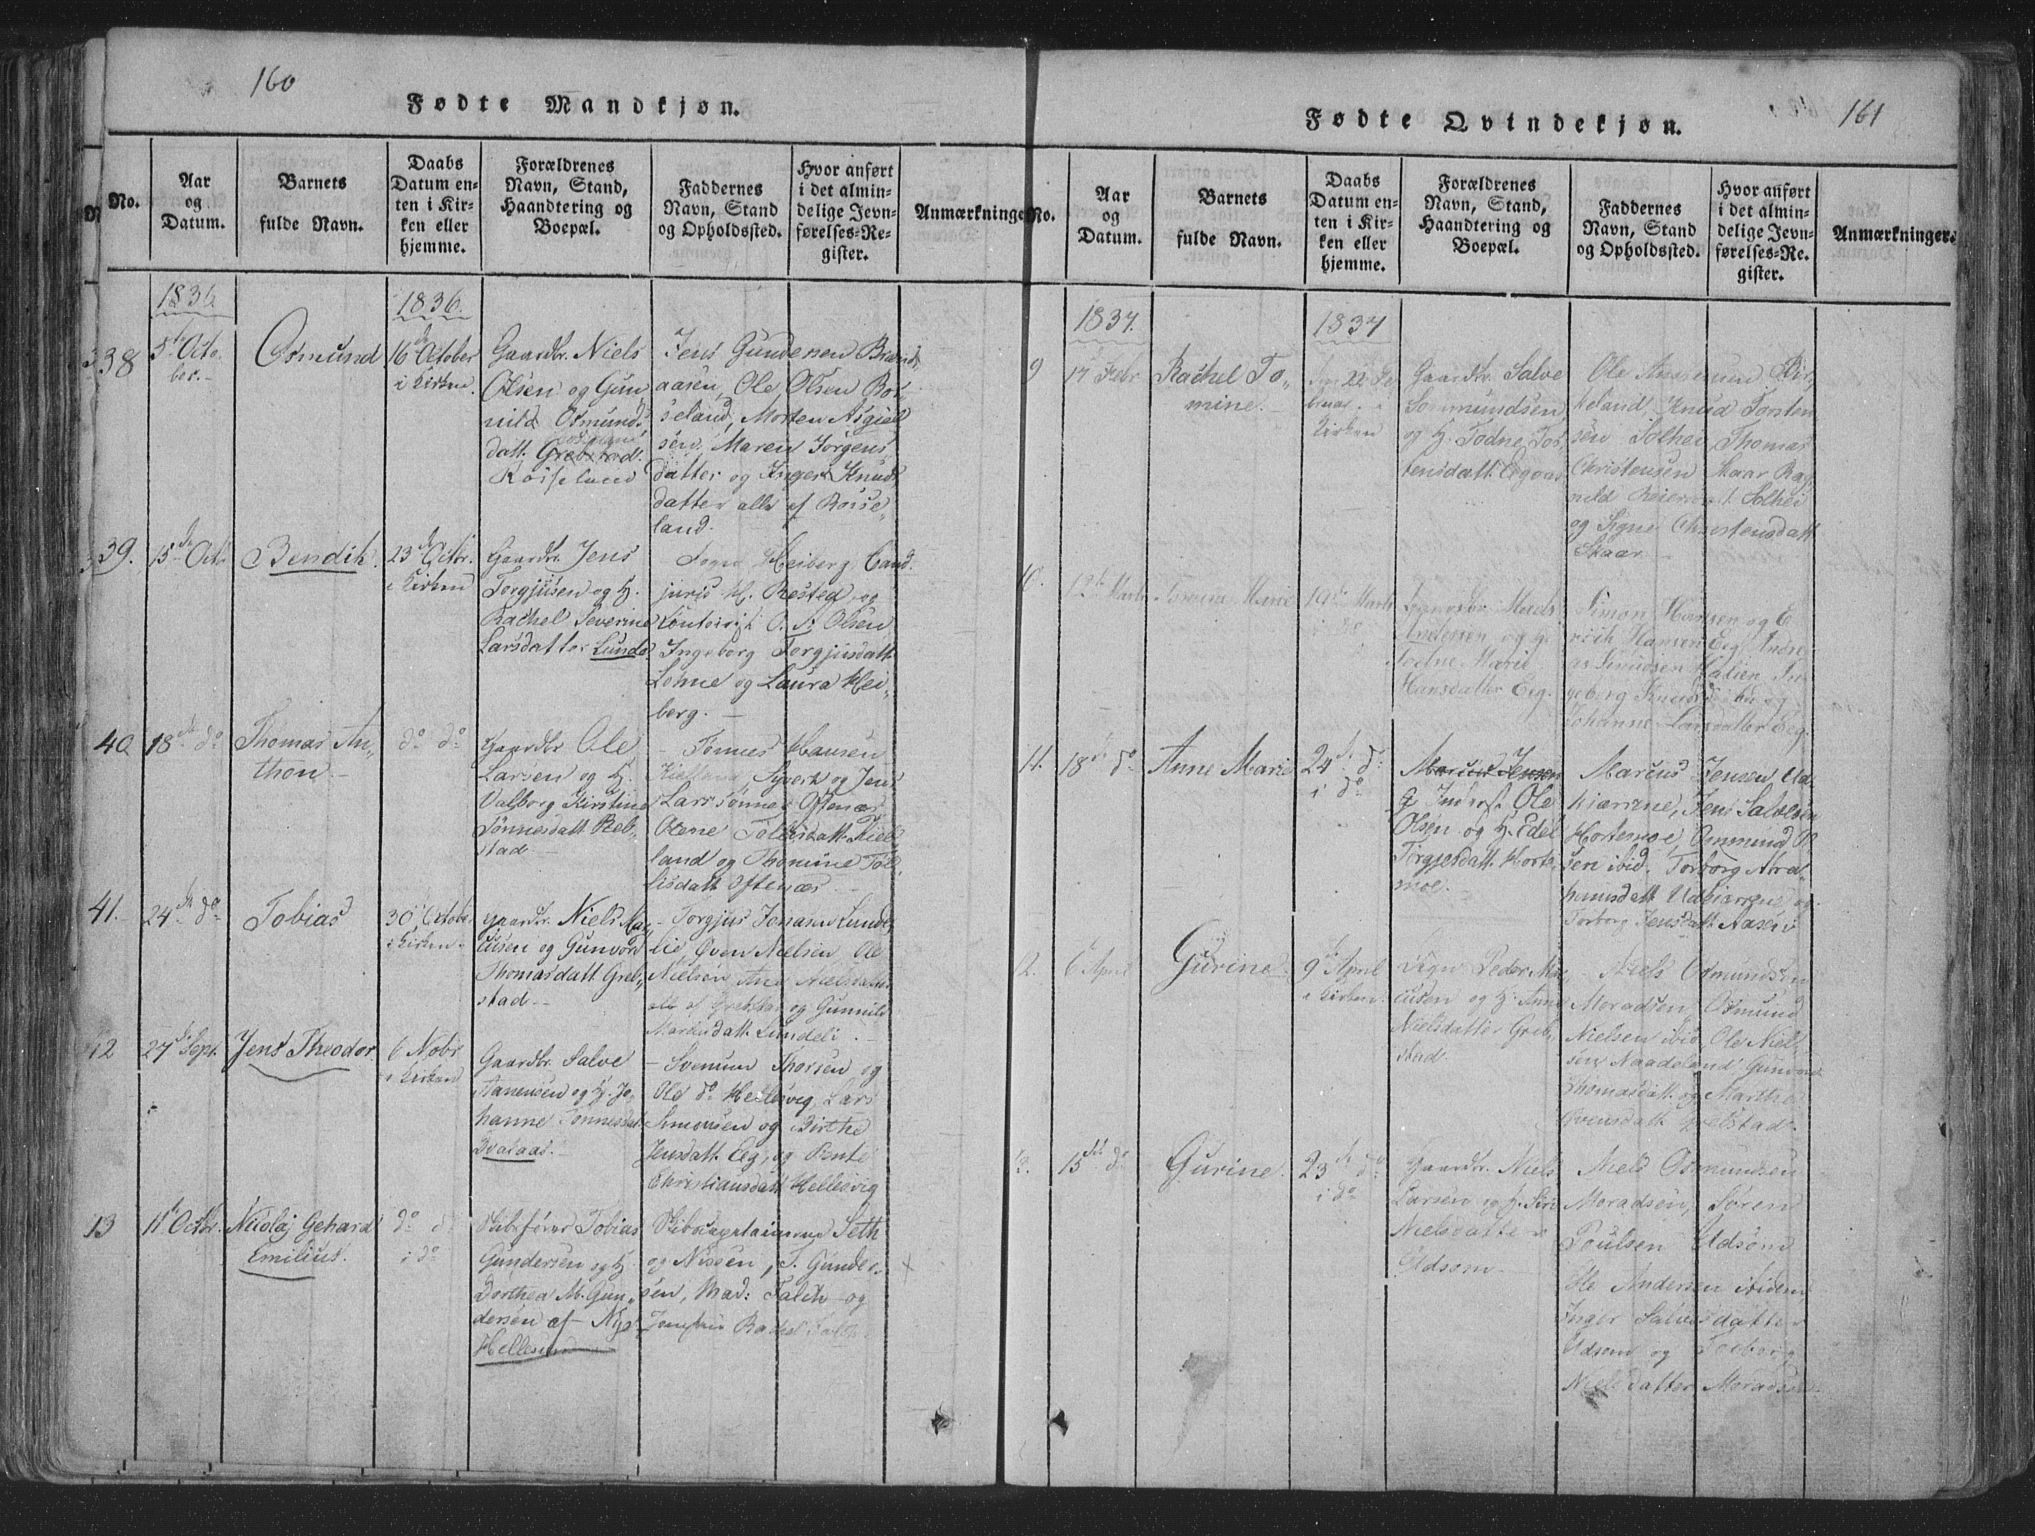 160
Fødte Mandkjøn.
No.
Aar
og
Datum.
Barnets
fulde Navn.
Daabs
Datum en-
ten i Kir-
ken eller
hjemme.
Forældrenes
Navn, Stand,
Haandtering og
Boepæl.
Faddernes
Navn, Stand
og Opholdssted.
Hvor anført
i det almin-
delige Jevn-
førelses-Re-
gister.
Anmærkninger
1836
1836.
38
5te Octo-
ber.
Osmund
16de October
i Kirken
Gaardbr. Niels
Olsen og Gun
nild Osmunds
datt. Grebstad.
Rosseland
Jens Gundersen
aasen, Ole Olsen Ros
seland, Morten Asgiel
sen, Maren Jørgens
datter og Inger Knuds
datter alle af Rosse-
land.
39.
15de Octr.
Bendik.
23de Octbr.
i Kirken
Gaardbr. Jens
Torgjusen og H.
Rachel Severine
Larsdatter Lunde
Heiberg, Cand.
juris H. Rosted og
Olsen
Ingeborg Torgjusdatt
Lohne og Laura Hei-
berg. —
40
18de do
Thomas An-
thon. —
do do
Gaardbr Ole
Larsen og H.
Valborg Kirstine
Tønnesdatt Reb-
stad —
— Tønnes Hansen
Kielland, Syvert og Jens
Larssønner Oftenæs
Olene Tollisdatt. Kiel-
land og Thomine Tol-
lisdatt Oftenæs —
41. —
24de do
Tobias
30 Octobr
i Kirken
Gaardbr. Niels Mar-
cusen og Gunvord
Thomasdatt Greb-
stad —
— Torgjus Jonasen Lunde-
lie Oven Nielsen, Ole
Nielsen, Ane Nielsdatter
alle af Grebstad og Gunnild
Marcusdatt. Lundeli. —
42
27de Sept.
Jens Theodor
6 Nobr
i Kirken
Gaardbr. Salve
Aanensen og H. Jo-
hanne Tønnesdat
— Svenum Thorsen og
Ole do Hellesvig, Lars
Simonsen og Birthe
Jensdatt. Eeg, og Bente
Christiansdatt Hellesvig
43
11te Octbr.
Nicolaj Gehard
Emilius.
do do
i do
Skibsfører Tobias
Gundersen og H.
Dorthea M. Gun-
dersen af Nye
Hellesund
Skibscaptainerne Seth
og Nissen, T. Gunder-
sen, Mad: Falch og
Jomfrue Rachel Falch
161
Fødte Qvindekjøn.
No.
Aar
og
Datum.
Barnets
fulde Navn.
Daabs
Datum en-
ten i Kir-
ken eller
hjemme.
Forældrenes
Navn, Stand,
Haandtering og
Boepæl.
Faddernes
Navn, Stand
og Opholdssted.
Hvor anført
i det almin-
delige Jevn-
førelses-Re-
gister.
Anmærkninger.
1837.
1837
9
17 Febr
Rachel To-
mine.
Kirken
Gaardbr. Salve
Sommundsen
og H. Todne Tos
tensdatt.
Ole
keland, Knud Torsten
sen Solhei, Thomas
Christensen Skaar Rag
nild Solhei
og Signe Christensdatt
Skaar —
10.
12te Marts
Marie
19de Marts
i do
Mads
Andersen og H.
Todne Marie
Hansdatter Eeg.
Simon Hansen og E
rich Hansen Eeg, Andre-
as Knudsen In
geborg
Johanne Larsdatter Eeg.
11.
18de do
Anne Marie
24de do
i do
Marcus Jensen
Inderst Ole
Olsen og H. Edel
Torgjersdatt. Horte-
moe. —
Marcus Jensen Ud-
kiærrene, Jens Salvesen
Hortemoe, Ommund Ol
sen ibid. Torborg Abra-
hamsdatt Udkiærrene og
Torborg Jensdatt. Aasen
12.
6 April
Gurine.
9de April
i Kirken.
Peder Mar
cusen og H. Anne
Nielsdatter Greb-
stad.
— Niels Osmundsen
Moradsen, Osmund
Nielsen ibid, Ole Niel-
sen Naadeland, Gunvor
Thomasdatt og Marthe
Ovensdatt
13.
15de do
Gurine.
23de do
i do
Gaardbr. Niels
Larsen og H. Siri
Nielsdatter
Udsom —
Niels Osmundsen
Moradsen, Søren
Poulsen Udsom
Ole Andersen
Inger Salvesdatter
Udsom og Torborg
Nielsdatter Moradsen